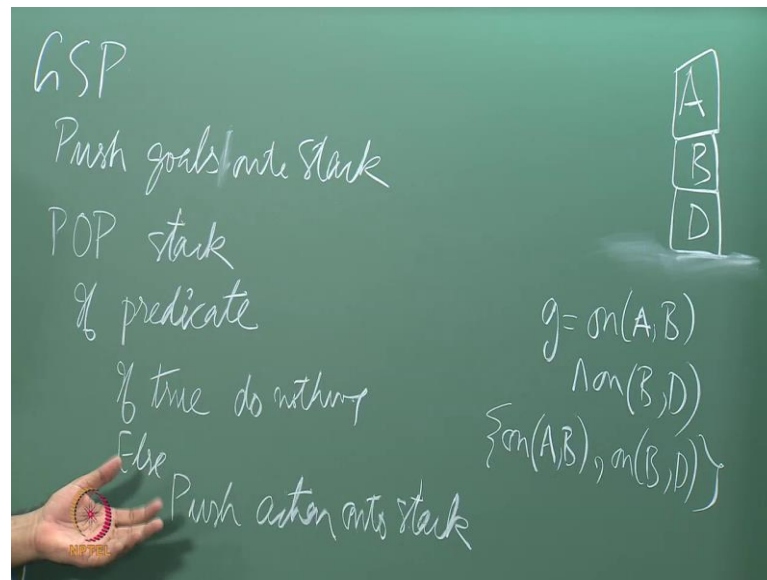 GSP
Push goals onto stack
POP stack
If predicate
If true do nothing
Else
Push action onto stack
A
B
D
g = on(A,B)
∧ on(B,D)
{on(A,B), on(B,D)}
NPTEL